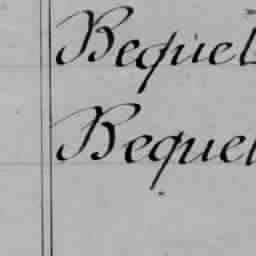 Bequet
Bequet